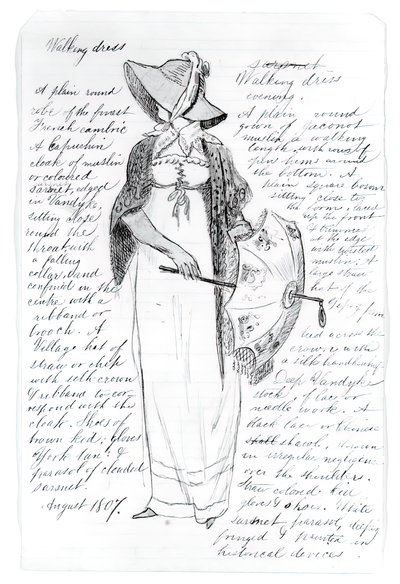 Walking dress
A plain round
robe of the finest
French cambric
A capuchin
cloak of muslin
or coloured
sarsnet, edged
in Vandyke,
sitting close
round the
throat with
a falling
collar, and
confined in the
centre with a
ribband or
brooch. A
Village hat of
straw or chip
with silk crown
& ribband to cor-
respond with the
cloak. Shoes of
brown kid; gloves
York tan &
parasol of clouded
sarsnet.
August 1807.
sarsnet
Walking dress
evening.
A plain round
gown of Jaconot
muslin a walking
length, with rows of
open hems around
the bottom. A
plain square bosom
sitting close to
the form, laced
up the front
& trimmed
at the edge
with
muslin. A
large straw
hat of the
form
tied across the
crown, with
a silk handkerchief.
Deep Vandyke
of lace or
needle work. A
black lace or
shawl.
in irregular negligence
over the shoulders.
Straw colored kid
gloves & shoes. White
sarsnet parasol, deeply
fringed & painted in
historical devices.